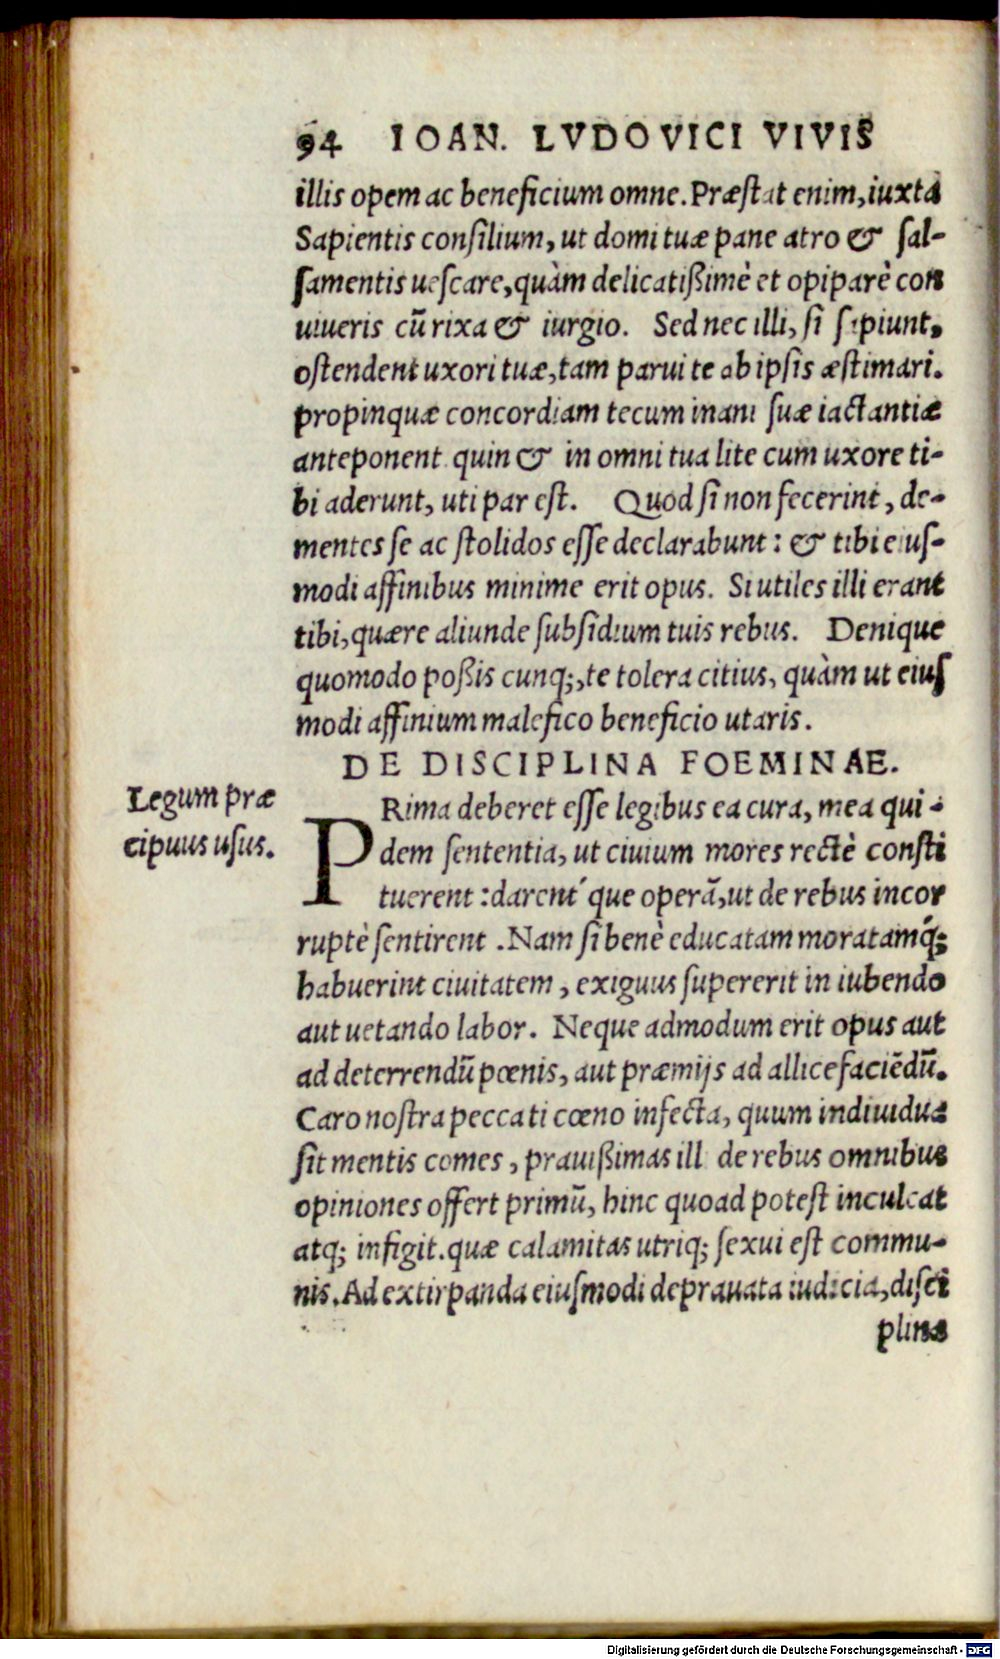 94 IOAN. LVDOVICI VIVIS
illis opem ac beneficium omne. Præſtat enim, iuxtà
Sapientis conſilium, ut domi tuæ pane atro & ſal-
ſamentis ueſcare, quàm delicatißimè et opiparè con
uiueris cū rixa & iurgio. Sed nec illi, ſi ſapiunt,
oſtendent uxori tuæ, tam parui te ab ipſis æſtimari.
propinquæ concordiam tecum inani ſuæ iactantiæ
anteponent quin & in omni tua lite cum uxore ti-
bi aderunt, uti par eſt. Quod ſi non fecerint, de-
mentes ſe ac ſtolidos eſſe declarabunt: & tibi eiuſ-
modi affinibus minime erit opus. Si utiles illi erant
tibi, quære aliunde ſubſidium tuis rebus. Denique
quomodo poßis cunq;, te tolera citius, quàm ut eiuſ
modi affinium malefico beneficio utaris.
DE DISCIPLINA FOEMINAE.
Legum præ
cipuus uſus.
PRima deberet eſſe legibus ea cura, mea qui-
dem ſententia, ut ciuium mores rectè conſti
tuerent: darent´que operā, ut de rebus incor
ruptè ſentirent. Nam ſi benè educatam moratamq́;
habuerint ciuitatem, exiguus ſupererit in iubendo
aut uetando labor. Neque admodum erit opus aut
ad deterrendū pœnis, aut præmijs ad allicefaciēdū.
Caro noſtra peccati cœno infecta, quum indiuidua
ſit mentis comes, prauißimas ill de rebus omnibus
opiniones offert primū, hinc quoad poteſt inculcat
atq; infigit. quæ calamitas utriq; ſexui eſt commu-
nis. Ad extirpanda eiuſmodi deprauata iudicia, diſci
plina
Digitalisierung gefördert durch die Deutsche Forschungsgemeinschaft - DFG